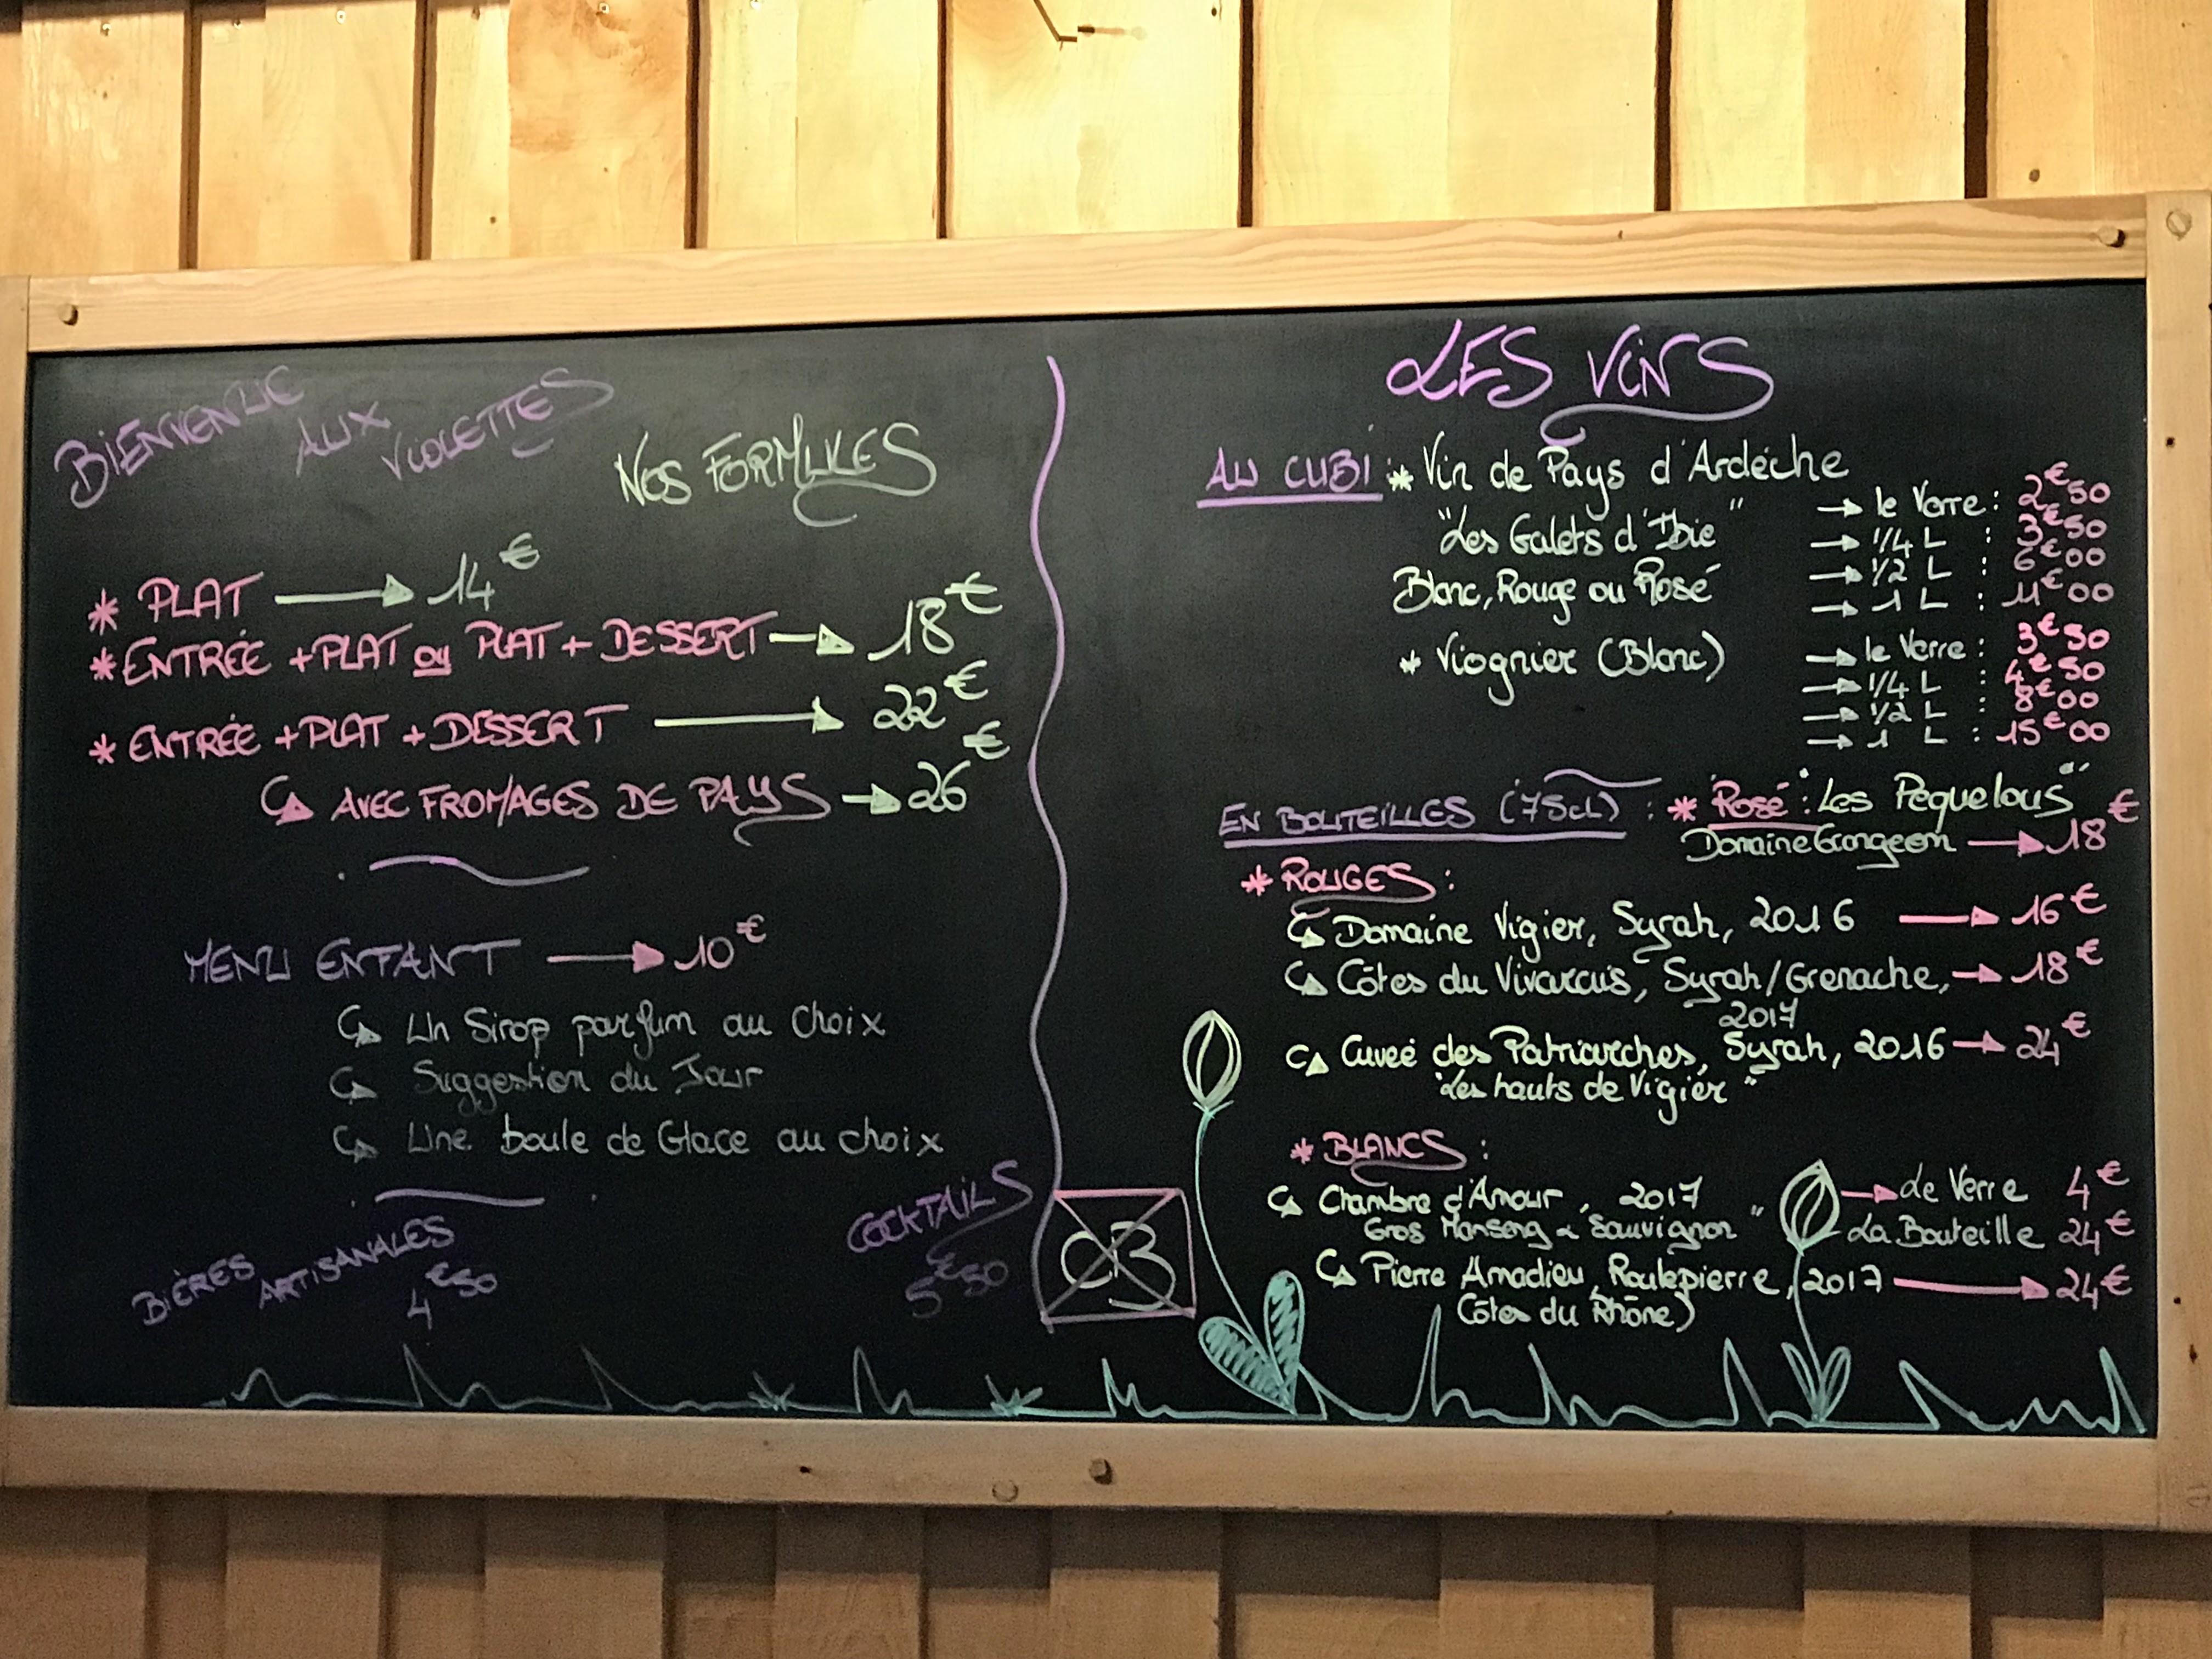 BIENVENUE AUX VIOLETTES
NOS FORMULES
* PLAT → 14€
* ENTRÉE + PLAT ou PLAT + DESSERT → 18€
* ENTRÉE + PLAT + DESSERT → 22€
AVEC FROMAGES DE PAYS → 26€
MENU ENFANT → 10€
Un Sirop parfum au choix
Suggestion du Jour
Une boule de Glace au choix
BIÈRES ARTISANALES
4€50
COCKTAILS
5€50
CB
LES VINS
AU CUBI : * Vin de Pays d'Ardèche
"Les Galets d'Ibie"
Blanc, Rouge ou Rosé
→ le Verre : 2€50
→ 1/4 L : 3€50
→ 1/2 L : 6€00
→ 1 L : 11€00
* Viognier (Blanc)
→ le Verre : 3€50
→ 1/4 L : 4€50
→ 1/2 L : 8€00
→ 1 L : 15€00
EN BOUTEILLES (75cL) : * Rosé : "Les Pequelous"
Domaine Grangeon → 18€
* ROUGES :
Domaine Vigier, Syrah, 2016 → 16€
Côtes du Vivarais, Syrah/Grenache, → 18€
2017
Cuveé des Patriarches, Syrah, 2016 → 24€
"Les hauts de Vigier"
* BLANCS :
Chambre d'Amour, 2017 → Le Verre 4€
Gros Manseng & Sauvignon " La Bouteille 24€
Pierre Amadieu, Roulepierre, 2017 → 24€
Côtes du Rhône)